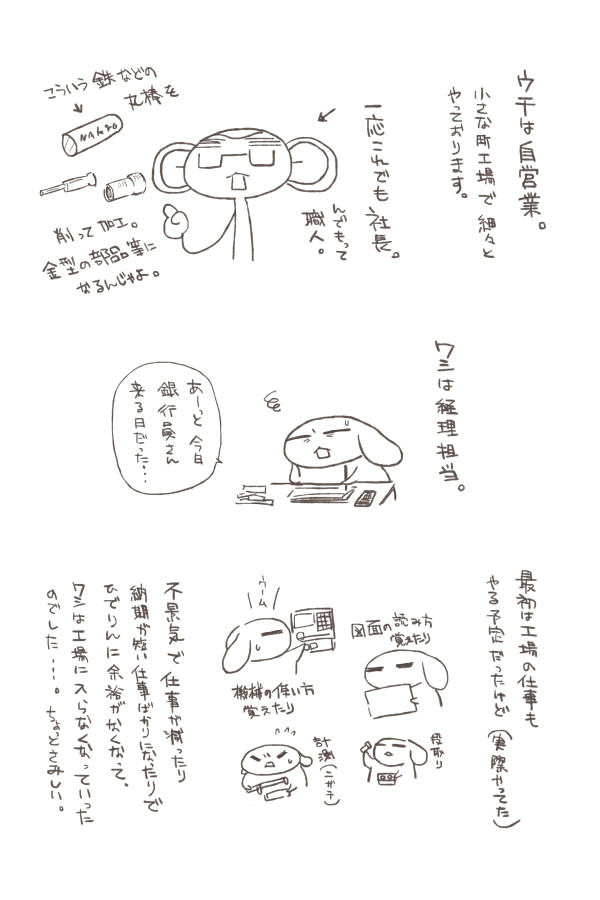 ウチは自営業。
小さな町工場で細々と
やっております。
一応これでも社長。
んでもって
職人。
こういう鉄などの
丸棒を
NAK80
削って加工。
金型の部品等に
なるんじゃよ。
ワシは経理担当。
あーっと今日
銀行員さん
来る日だった…
最初は工場の仕事も
やる予定だったけど(実際やってた)
図面の読み方
覚えたり
ウーム
機械の使い方
覚えたり
段取り
計測(ニガテ)
不景気で仕事が減ったり
納期が短い仕事ばかりになったりで
ひでりんに余裕がなくなって、
ワシは工場に入らなくなっていった
のでした…。ちょっとさみしい。